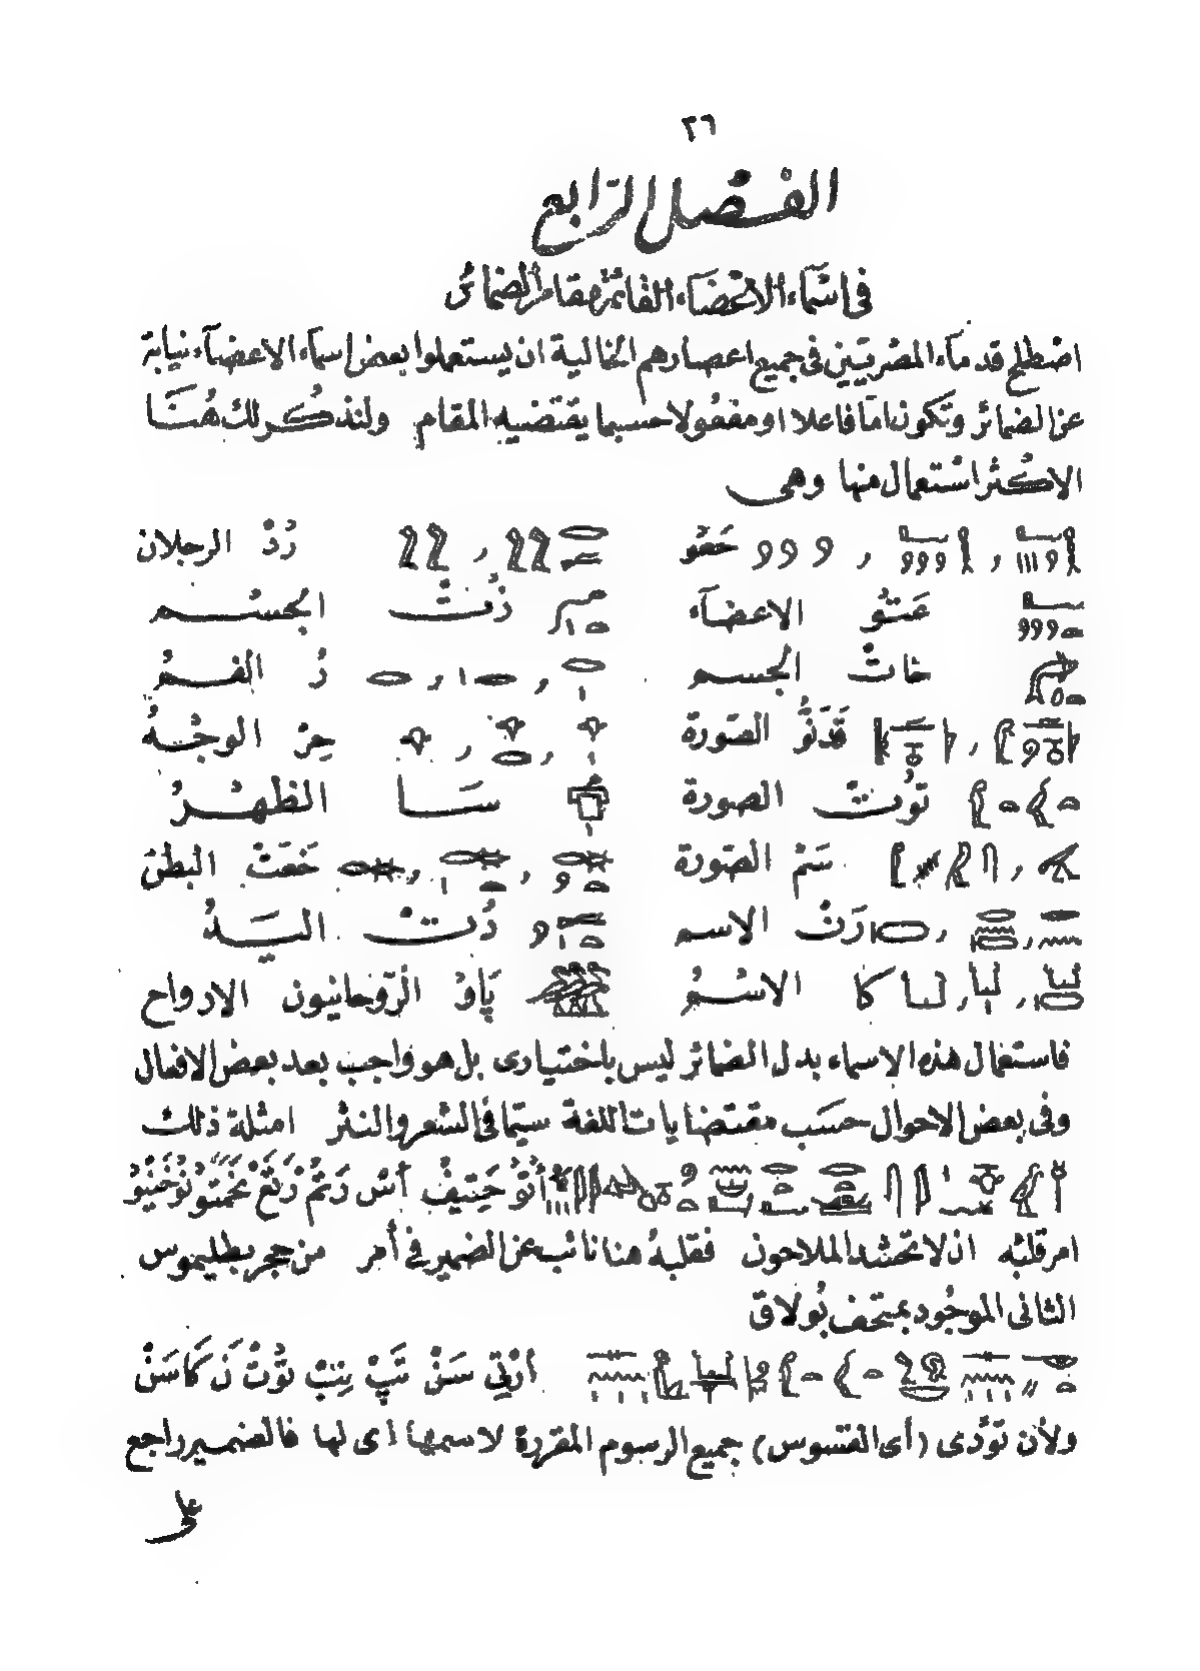 ٢٦
الفصل الرابع
فى اسماء الاعضاء القائمة مقام الضمائر
اصطلح قدماء المصريين فى جميع اعصارهم الخالية ان يستعملوا بعض اسماء الاعضاء نيابة
عن الضمائر وتكون اما فاعلا او مفعولا حسبما يقتضيه المقام ولنذكر لك هنا
الاكثر استعمال منها وهى
حَعُو رُدْ الرجلان
عَتُو الاعضاء ذُتْ الجسم
خاتْ الجسم رُ الفم
قَدَنُو الصورة حِرْ الوجه
تُوتْ الصورة سَا الظهر
سَمْ الصورة خَعَتْ البطن
رَنْ الاسم دُتْ اليد
كا الاسم پَاوُ الروحانيون الارواح
فاستعمال هذه الاسماء بدل الضمائر ليس باختيارى بل هو واجب بعد بعض الافعال
وفى بعض الاحوال حسب مقتضايات اللغة سيما فى الشعر والنثر امثلة ذلك
امر قلبه ان لا تحتشد الملاحون فقلبه هنا نائب عن الضمير فى أمر من حجر بطليموس
الثانى الموجود بمتحف بولاق
أرْتِى سَنْ تَپْ نِبْ تُوتْ نَ كَاسَنْ
ولأن تؤدى (أى القسوس) جميع الرسوم المقررة لاسمها اى لها فالضمير راجع
على